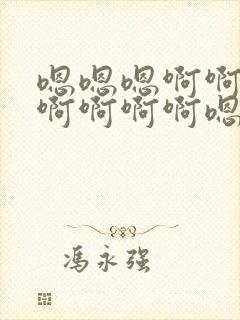 嗯嗯嗯啊啊
啊啊啊啊嗯
冯永强